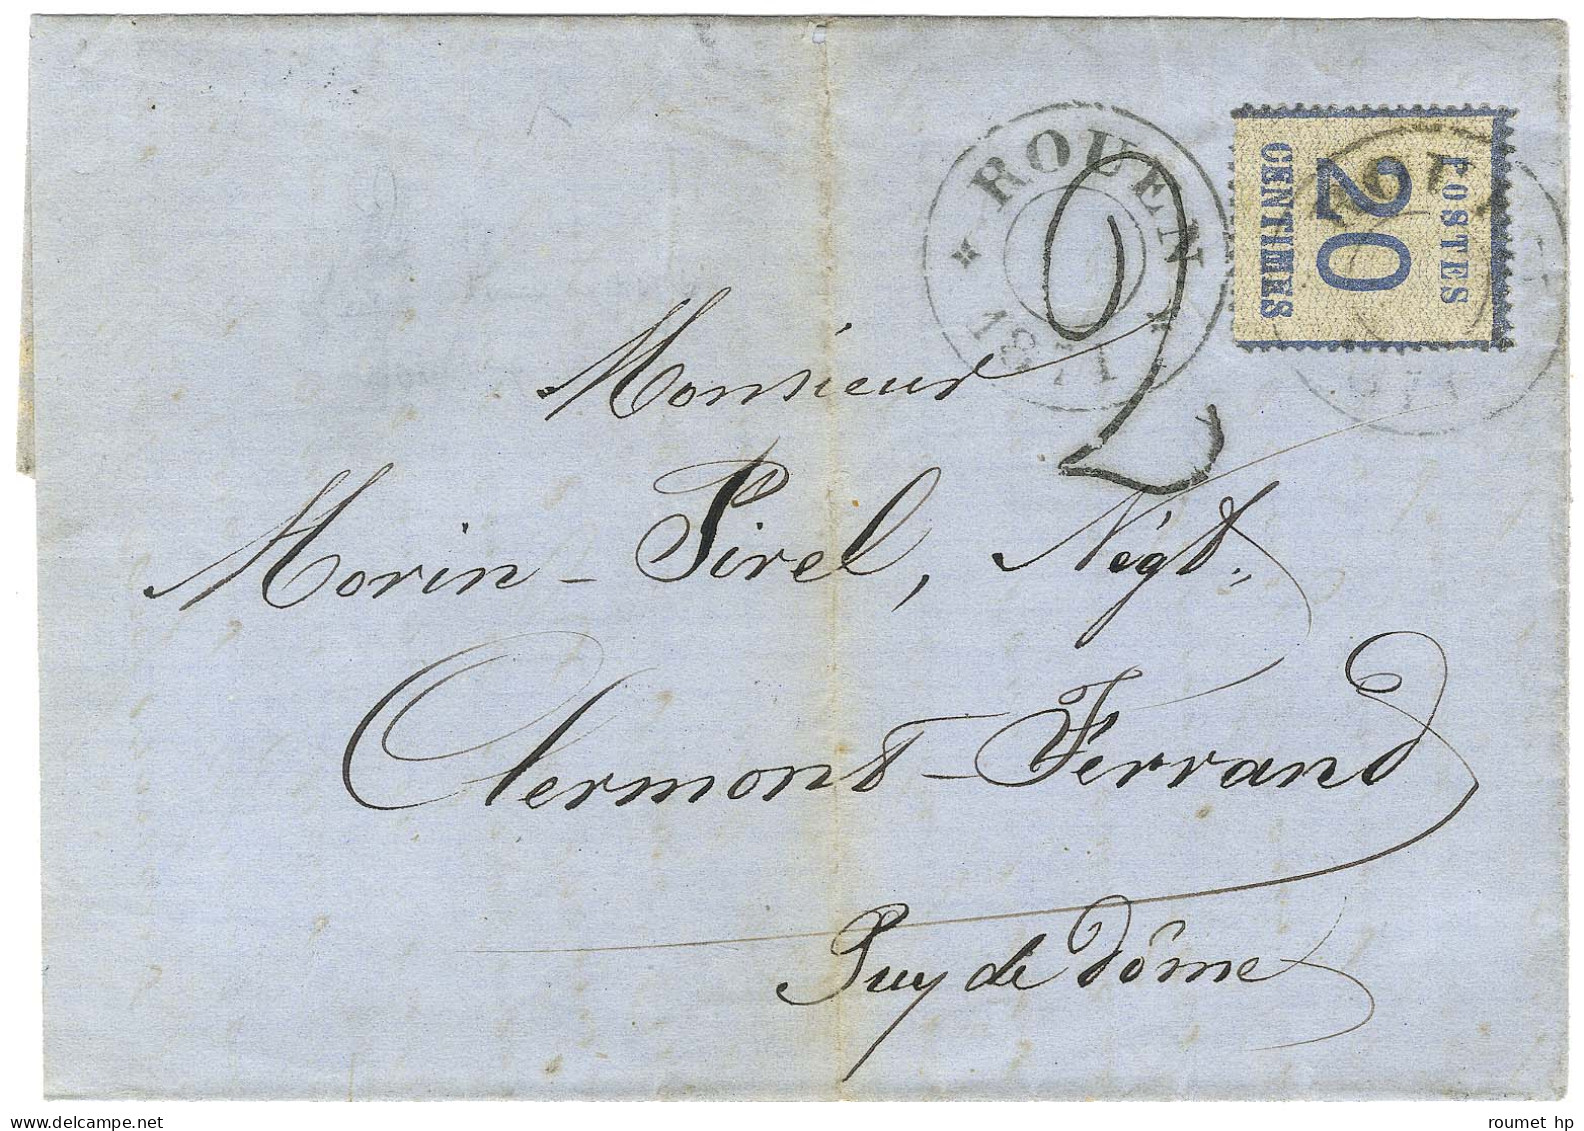 ROUEN
1871
2
POSTES
20
CENTIMES
Monsieur
Morin - Pirel, Négt.
Clermont-Ferrand
Puy de Dôme
www.delcampe.net
roumet hp